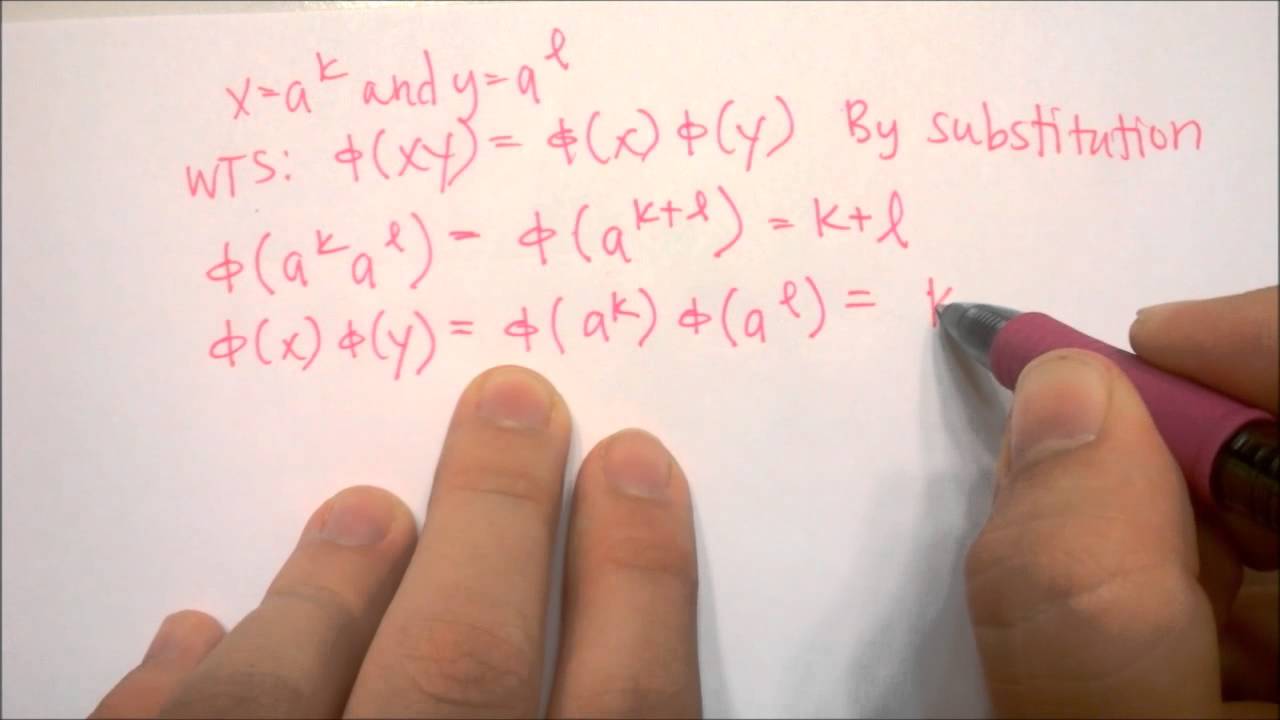 x=a^k and y=a^l
WTS: ϕ(xy)= ϕ(x) ϕ(y) By substitution
ϕ(a^k a^l)= ϕ(a^{k+l}) = k+l
ϕ(x) ϕ(y) = ϕ(a^k) ϕ(a^l) = k